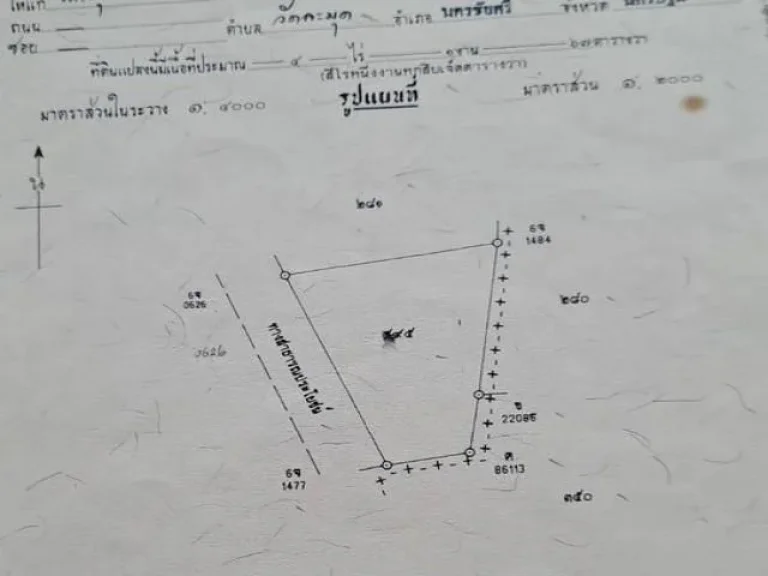 ถนน ตำบล วัดละมุด อำเภอ นครชัยศรี จังหวัด
ซอย
ที่ดินแปลงนี้มีเนื้อที่ประมาณ ๔ ไร่ ๑ งาน ๖๗ ตารางวา
(สี่ไร่หนึ่งงานหกสิบเจ็ดตารางวา)
มาตราส่วนในระวาง ๑: ๔๐๐๐ รูปแผนที่ มาตราส่วน ๑: ๒๐๐๐
๒๘๑
6จ
1484
6จ
0626
๒๘๐
0626
ทางสาธารณประโยชน์
ข
22086
ศ
86113
6จ
1477
๓๕๐